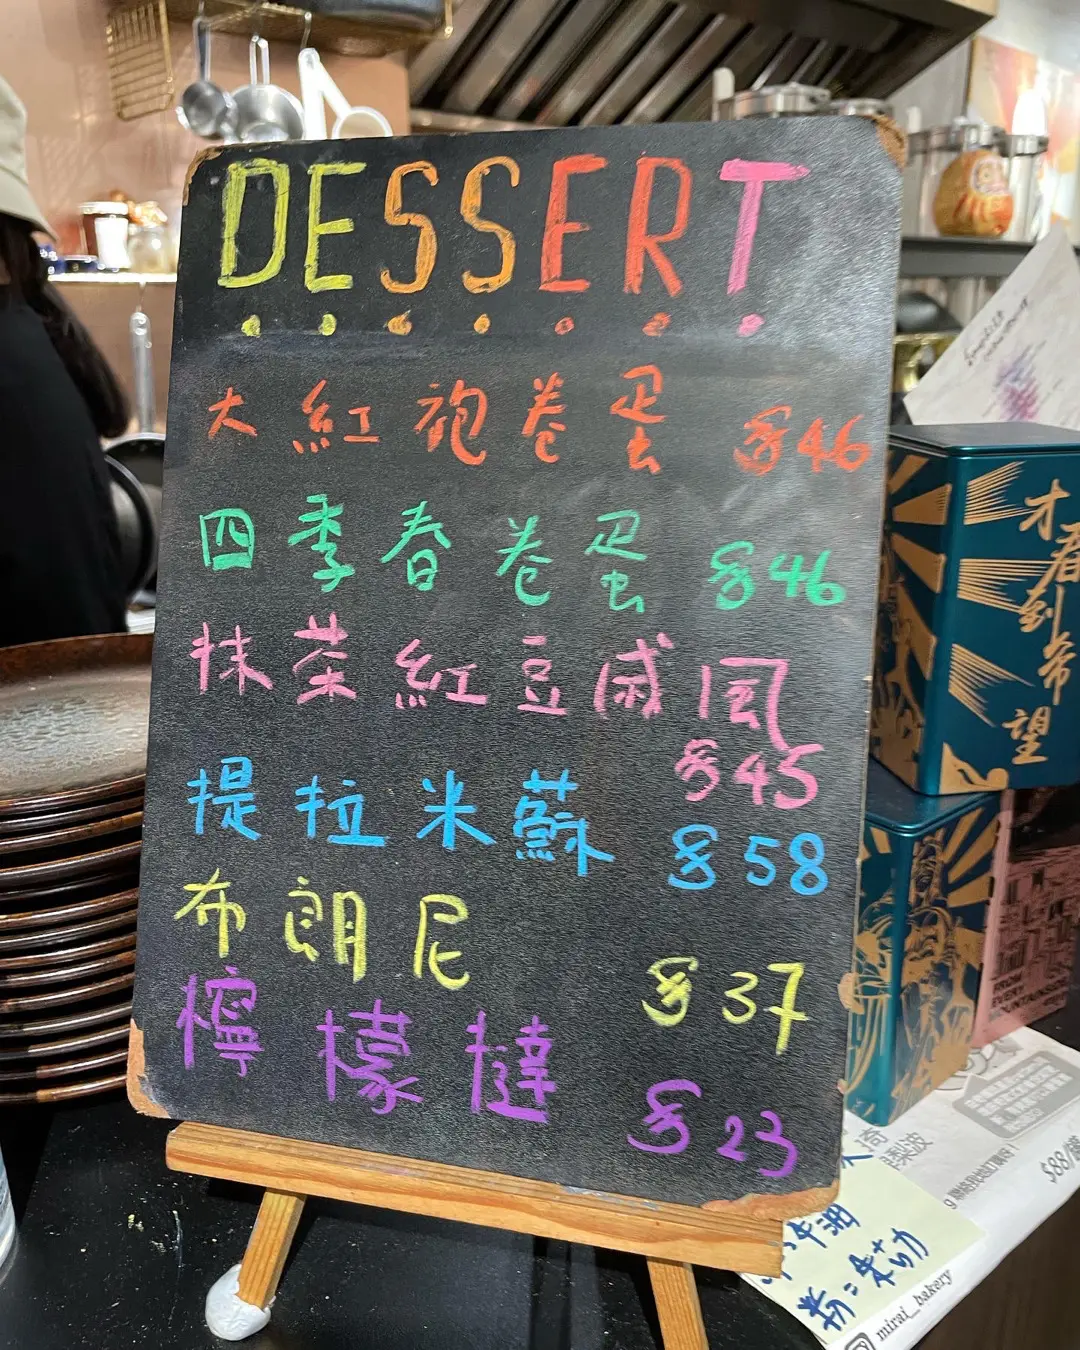 DESSERT
大紅袍卷蛋 $46
四季春卷蛋 $46
抹茶紅豆戚風
$45
提拉米蘇 $58
布朗尼 $37
檸檬撻 $23
才看到希望
FROM
EVERY
$88/
mirai_bakery